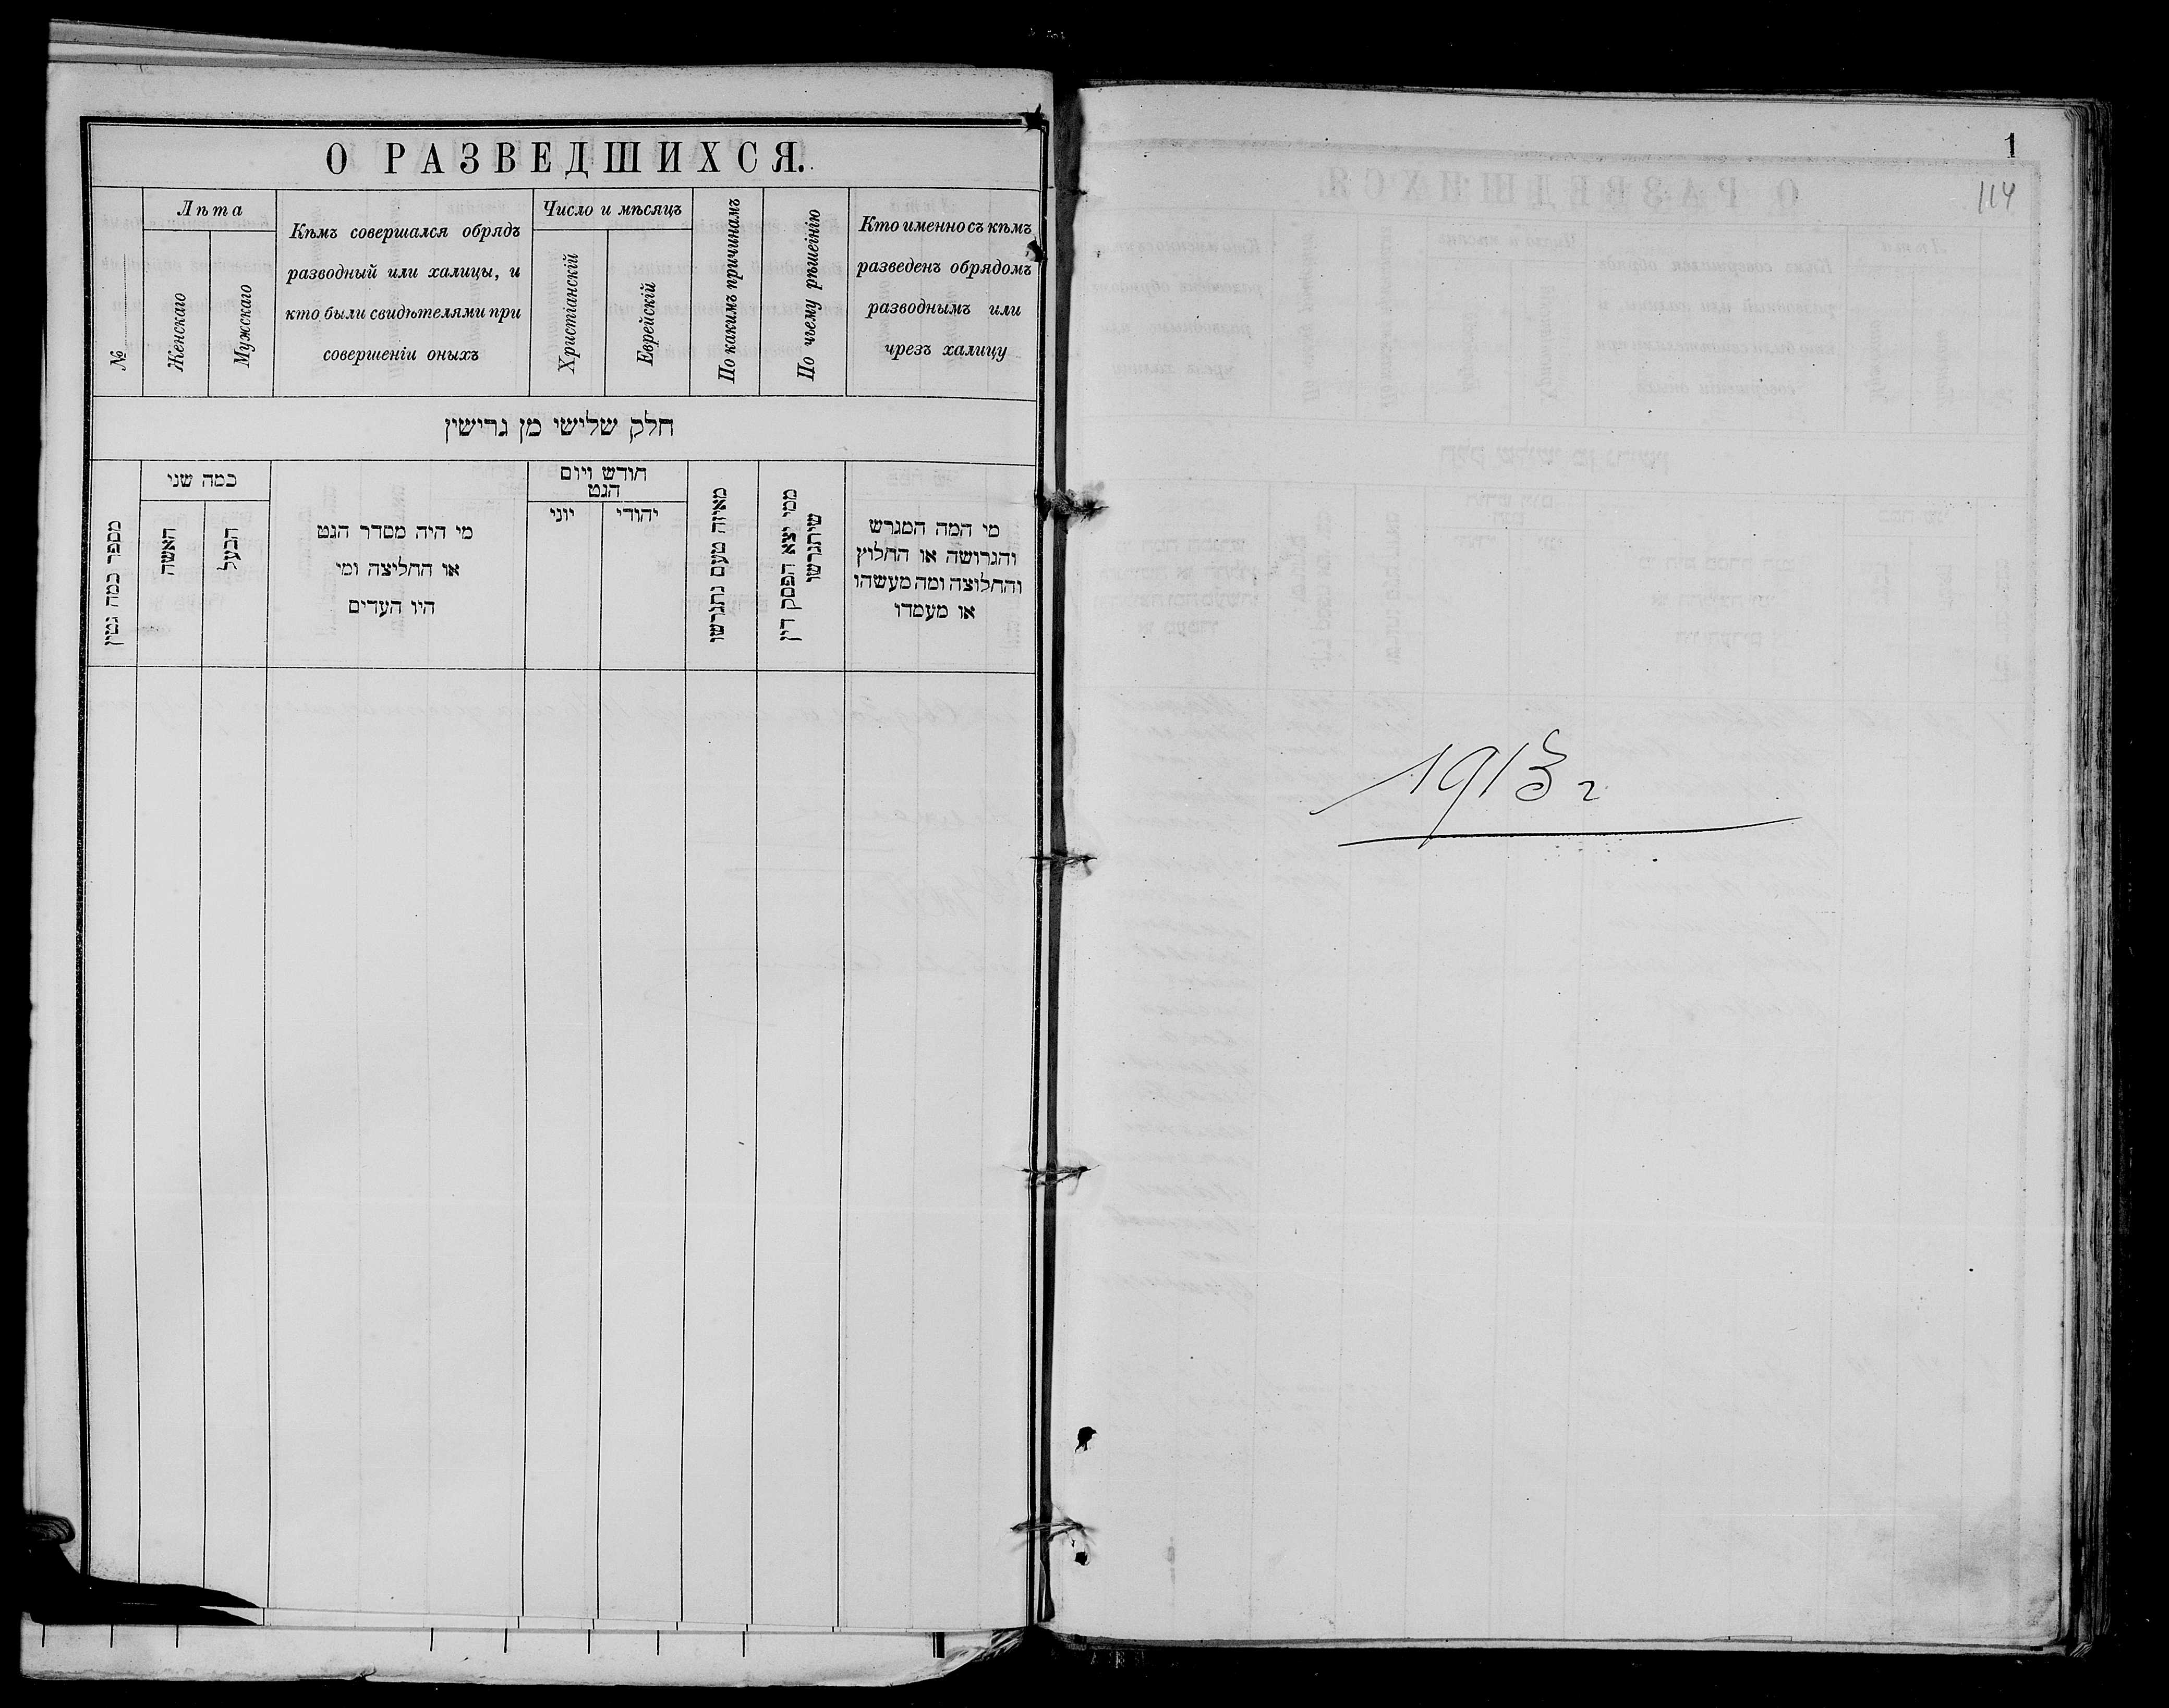 О РАЗВЕДШИХСЯ.
№
Лѣта
Женскаго
Мужскаго
Кѣмъ совершался обрядъ
разводный или халицы, и
кто были свидѣтелями при
совершеніи оныхъ
Число и мѣсяцъ
Христіанскій
Еврейскій
По какимъ причинамъ
По чьему рѣшенію
Кто именно съ кѣмъ
разведенъ обрядомъ
разводнымъ или
чрезъ халицу
חלק שלישי מן גרישין
מספר כמה גטין
כמה שני
האשה
הבעל
מי היה מסדר הגט
או החליצה ומי
היו העדים
חודש ויום
הגט
יוני
יהודי
מאיזה טעם נתגרשו
ממי יצא הפסק דין
שיתגרשו
מי המה המגרש
והגרושה או החלוץ
והחלוצה ומה מעשהו
או מעמדו
1
114
1913 г